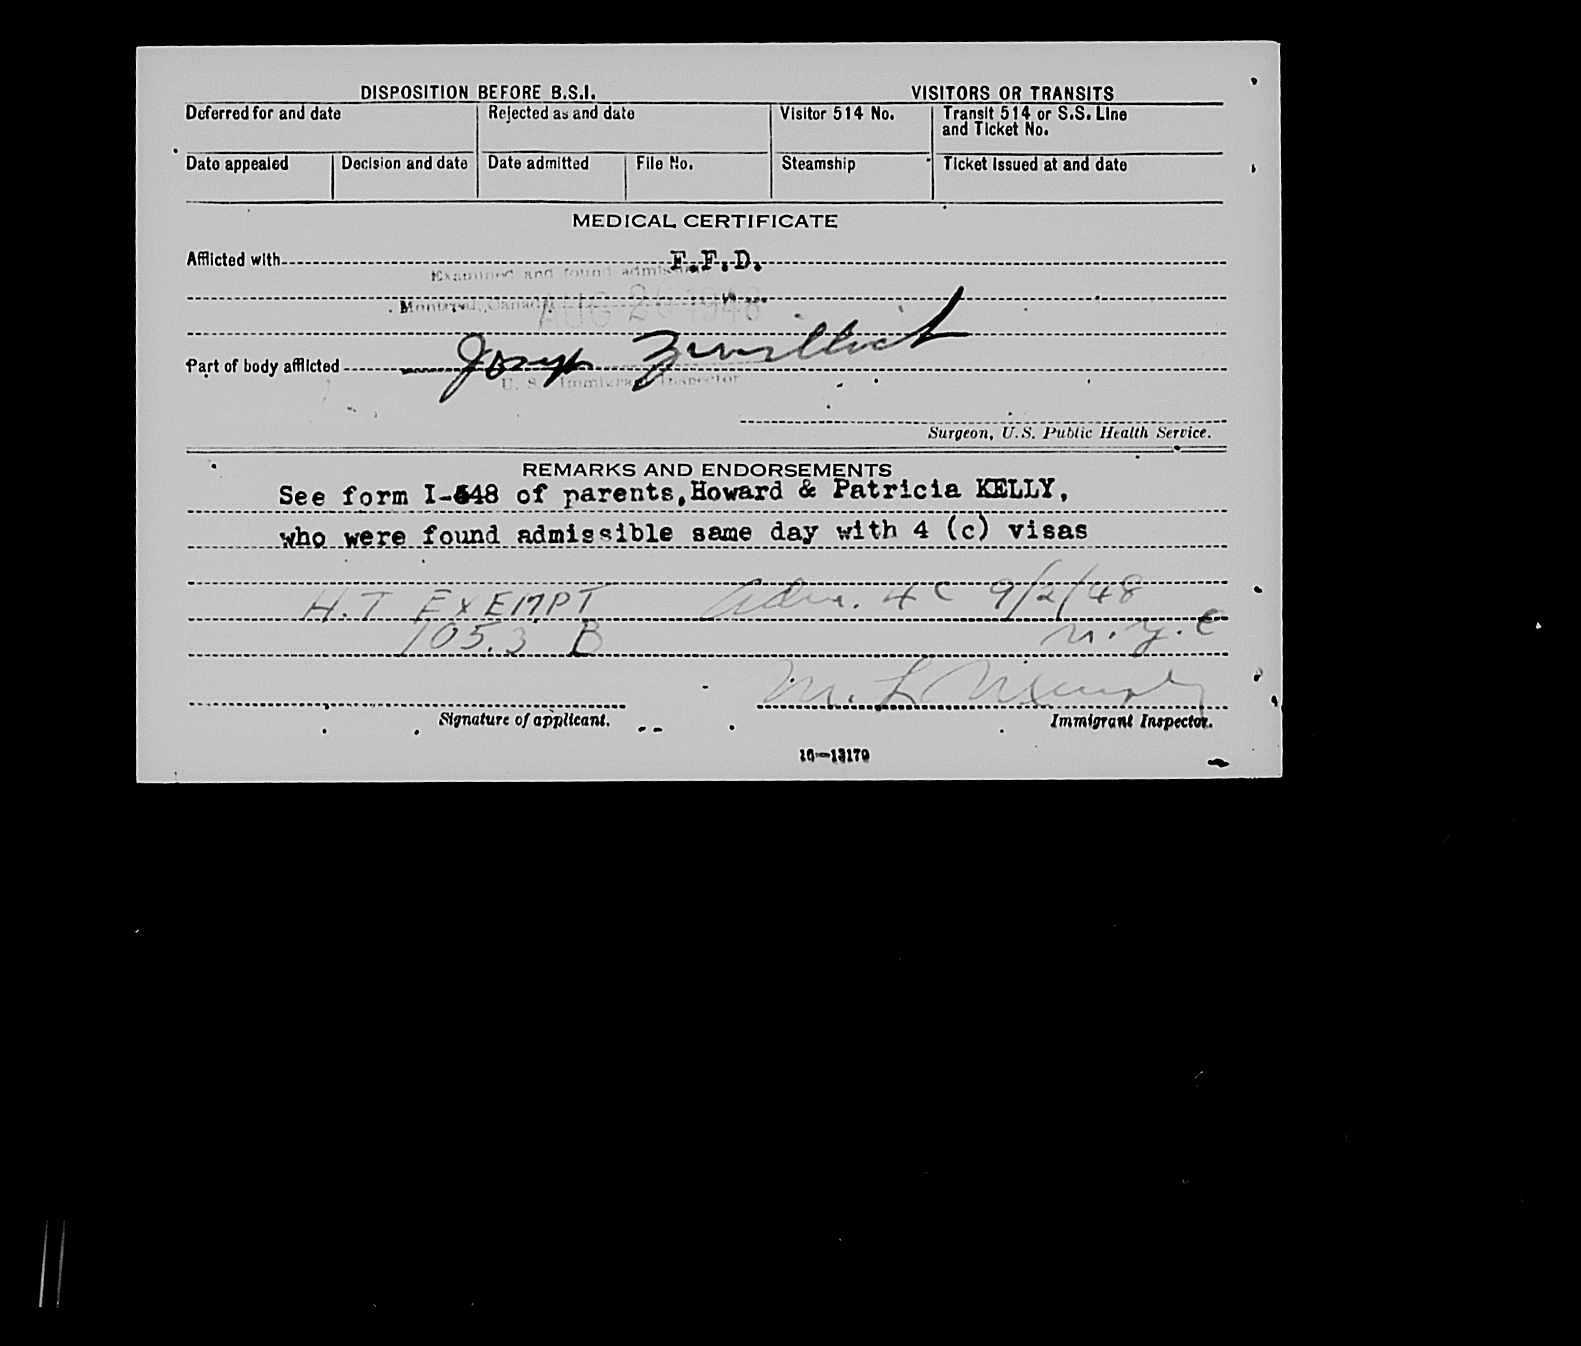 DISPOSITION BEFORE B.S.I. VISITORS OR TRANSITS
Deferred for and date Rejected as and date Visitor 514 No. Transit 514 or S.S. Line
and Ticket No.
Date appealed Decision and date Date admitted File No. Steamship Ticket Issued at and date
MEDICAL CERTIFICATE
Afflicted with F.F.D.
Examined and found admissible
Montreal, Canada AUG 26 1948
Part of body afflicted Joseph
U. S. Immigrant Inspector
Surgeon, U.S. Public Health Service.
REMARKS AND ENDORSEMENTS
See form I-448 of parents, Howard & Patricia KELLY,
who were found admissible same day with 4 (c) visas
H.T EXEMPT Adm. 4C 9/2/48
105.3 B N.Y.C
M. L.
Signature of applicant. Immigrant Inspector.
16—13179